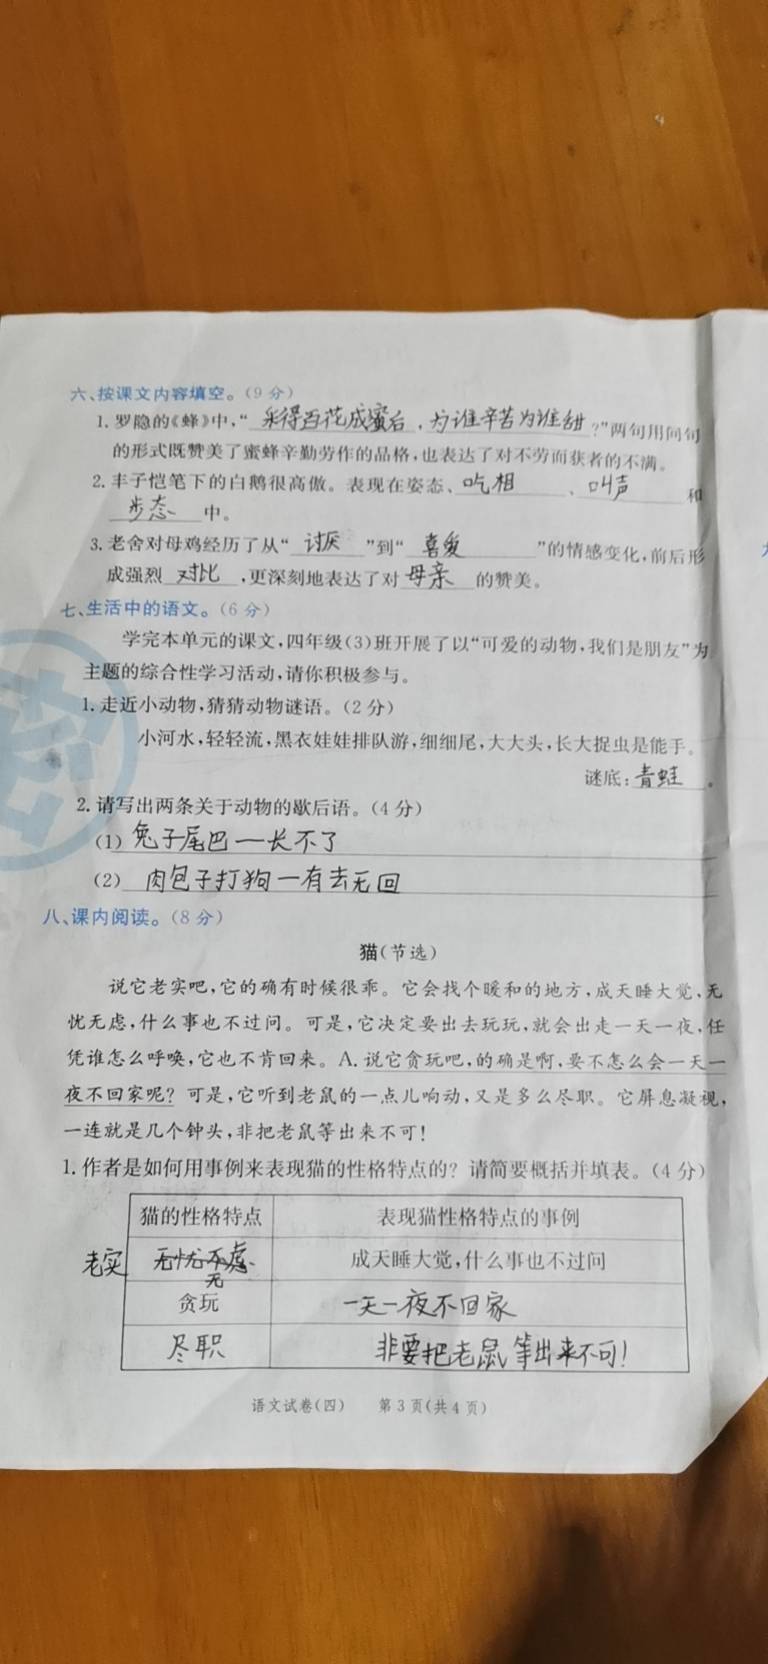 六、按课文内容填空。(9分)
1. 罗隐的《蜂》中,“采得百花成蜜后,为谁辛苦为谁甜?”两句用问句
的形式既赞美了蜜蜂辛勤劳作的品格,也表达了对不劳而获者的不满。
2. 丰子恺笔下的白鹅很高傲。表现在姿态、吃相、叫声和
步态中。
3. 老舍对母鸡经历了从“讨厌”到“喜爱”的情感变化,前后形
成强烈对比,更深刻地表达了对母亲的赞美。
七、生活中的语文。(6分)
学完本单元的课文,四年级(3)班开展了以“可爱的动物,我们是朋友”为
主题的综合性学习活动,请你积极参与。
1. 走近小动物,猜猜动物谜语。(2分)
小河水,轻轻流,黑衣娃娃排队游,细细尾,大大头,长大捉虫是能手。
谜底:青蛙。
2. 请写出两条关于动物的歇后语。(4分)
(1) 兔子尾巴一长不了
(2) 肉包子打狗一有去无回
八、课内阅读。(8分)
猫(节选)
说它老实吧,它的确有时候很乖。它会找个暖和的地方,成天睡大觉,无
忧无虑,什么事也不过问。可是,它决定要出去玩玩,就会出走一天一夜,任
凭谁怎么呼唤,它也不肯回来。A. 说它贪玩吧,的确是啊,要不怎么会一天一
夜不回家呢?可是,它听到老鼠的一点儿响动,又是多么尽职。它屏息凝视,
一连就是几个钟头,非把老鼠等出来不可!
1. 作者是如何用事例来表现猫的性格特点的?请简要概括并填表。(4分)
猫的性格特点 表现猫性格特点的事例
老实 无忧无虑 成天睡大觉,什么事也不过问
贪玩 一天一夜不回家
尽职 非要把老鼠等出来不可!
语文试卷(四) 第3页(共4页)